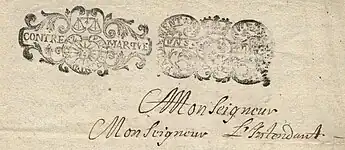 CONTRE MARQVE
A Monseigneur
Monseigneur L'Intendant